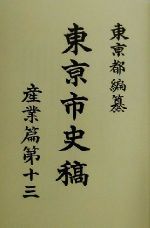 東京都編纂
東京市史稿
産業篇第十三